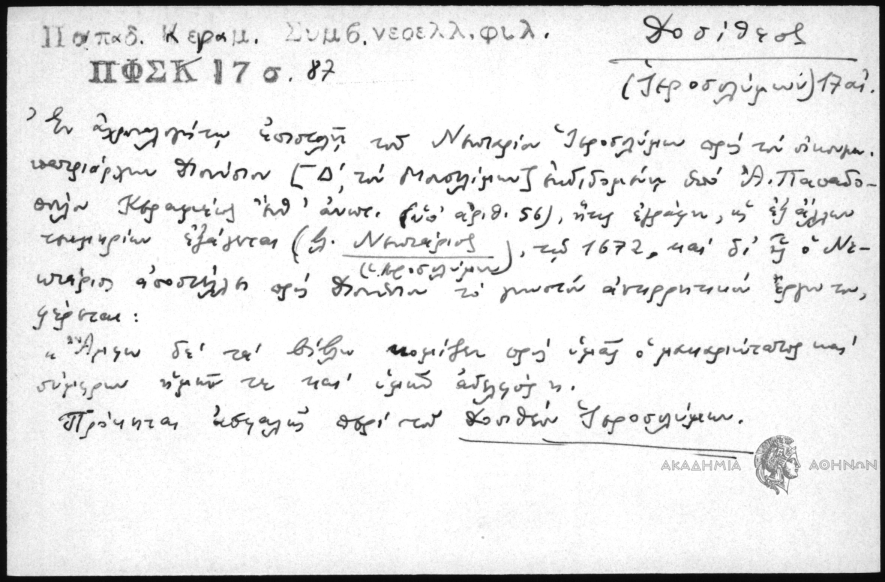 Παπαδ. Κεραμ. Συμβ. νεοελλ. φιλ.
ΠΦΣΚ 17 σ. 87
Δοσίθεος
(Ἱεροσολύμων) 17 αἰ.
Ἐν ἀχρονολογήτῳ ἐπιστολῇ τοῦ Νεκταρίου Ἱεροσολύμων πρὸς τὸν οἰκουμ.
πατριάρχην Διονύσιον [Δ', τὸν Μουσελίμην] ἐκδιδομένῃ ὑπὸ Ἀ. Παπαδο-
πούλου Κεραμέως ἔνθ' ἀνωτ. (ὑπ' ἀριθ. 56), ἥτις ἐγράφη, ὡς ἐξ ἄλλων
τεκμηρίων ἐξάγεται (βλ. Νεκτάριος
(Ἱεροσολύμων)), τῷ 1672, καὶ δι' ἧς ὁ Νε-
κτάριος ἀποστέλλει πρὸς Διονύσιον τὸ γνωστὸν ἀντιρρητικὸν ἔργον του,
φέρεται:
« Ἄμφω δὲ τὰ βίβλω κομίζει πρὸς ὑμᾶς ὁ μακαριώτατος καὶ
σύμφρων ἡμῶν τε καὶ ὑμῶν ἀδελφός ».
Πρόκειται ἀσφαλῶς περὶ τοῦ Δοσιθέου Ἱεροσολύμων.
ΑΚΑΔΗΜΙΑ ΑΘΗΝΩΝ